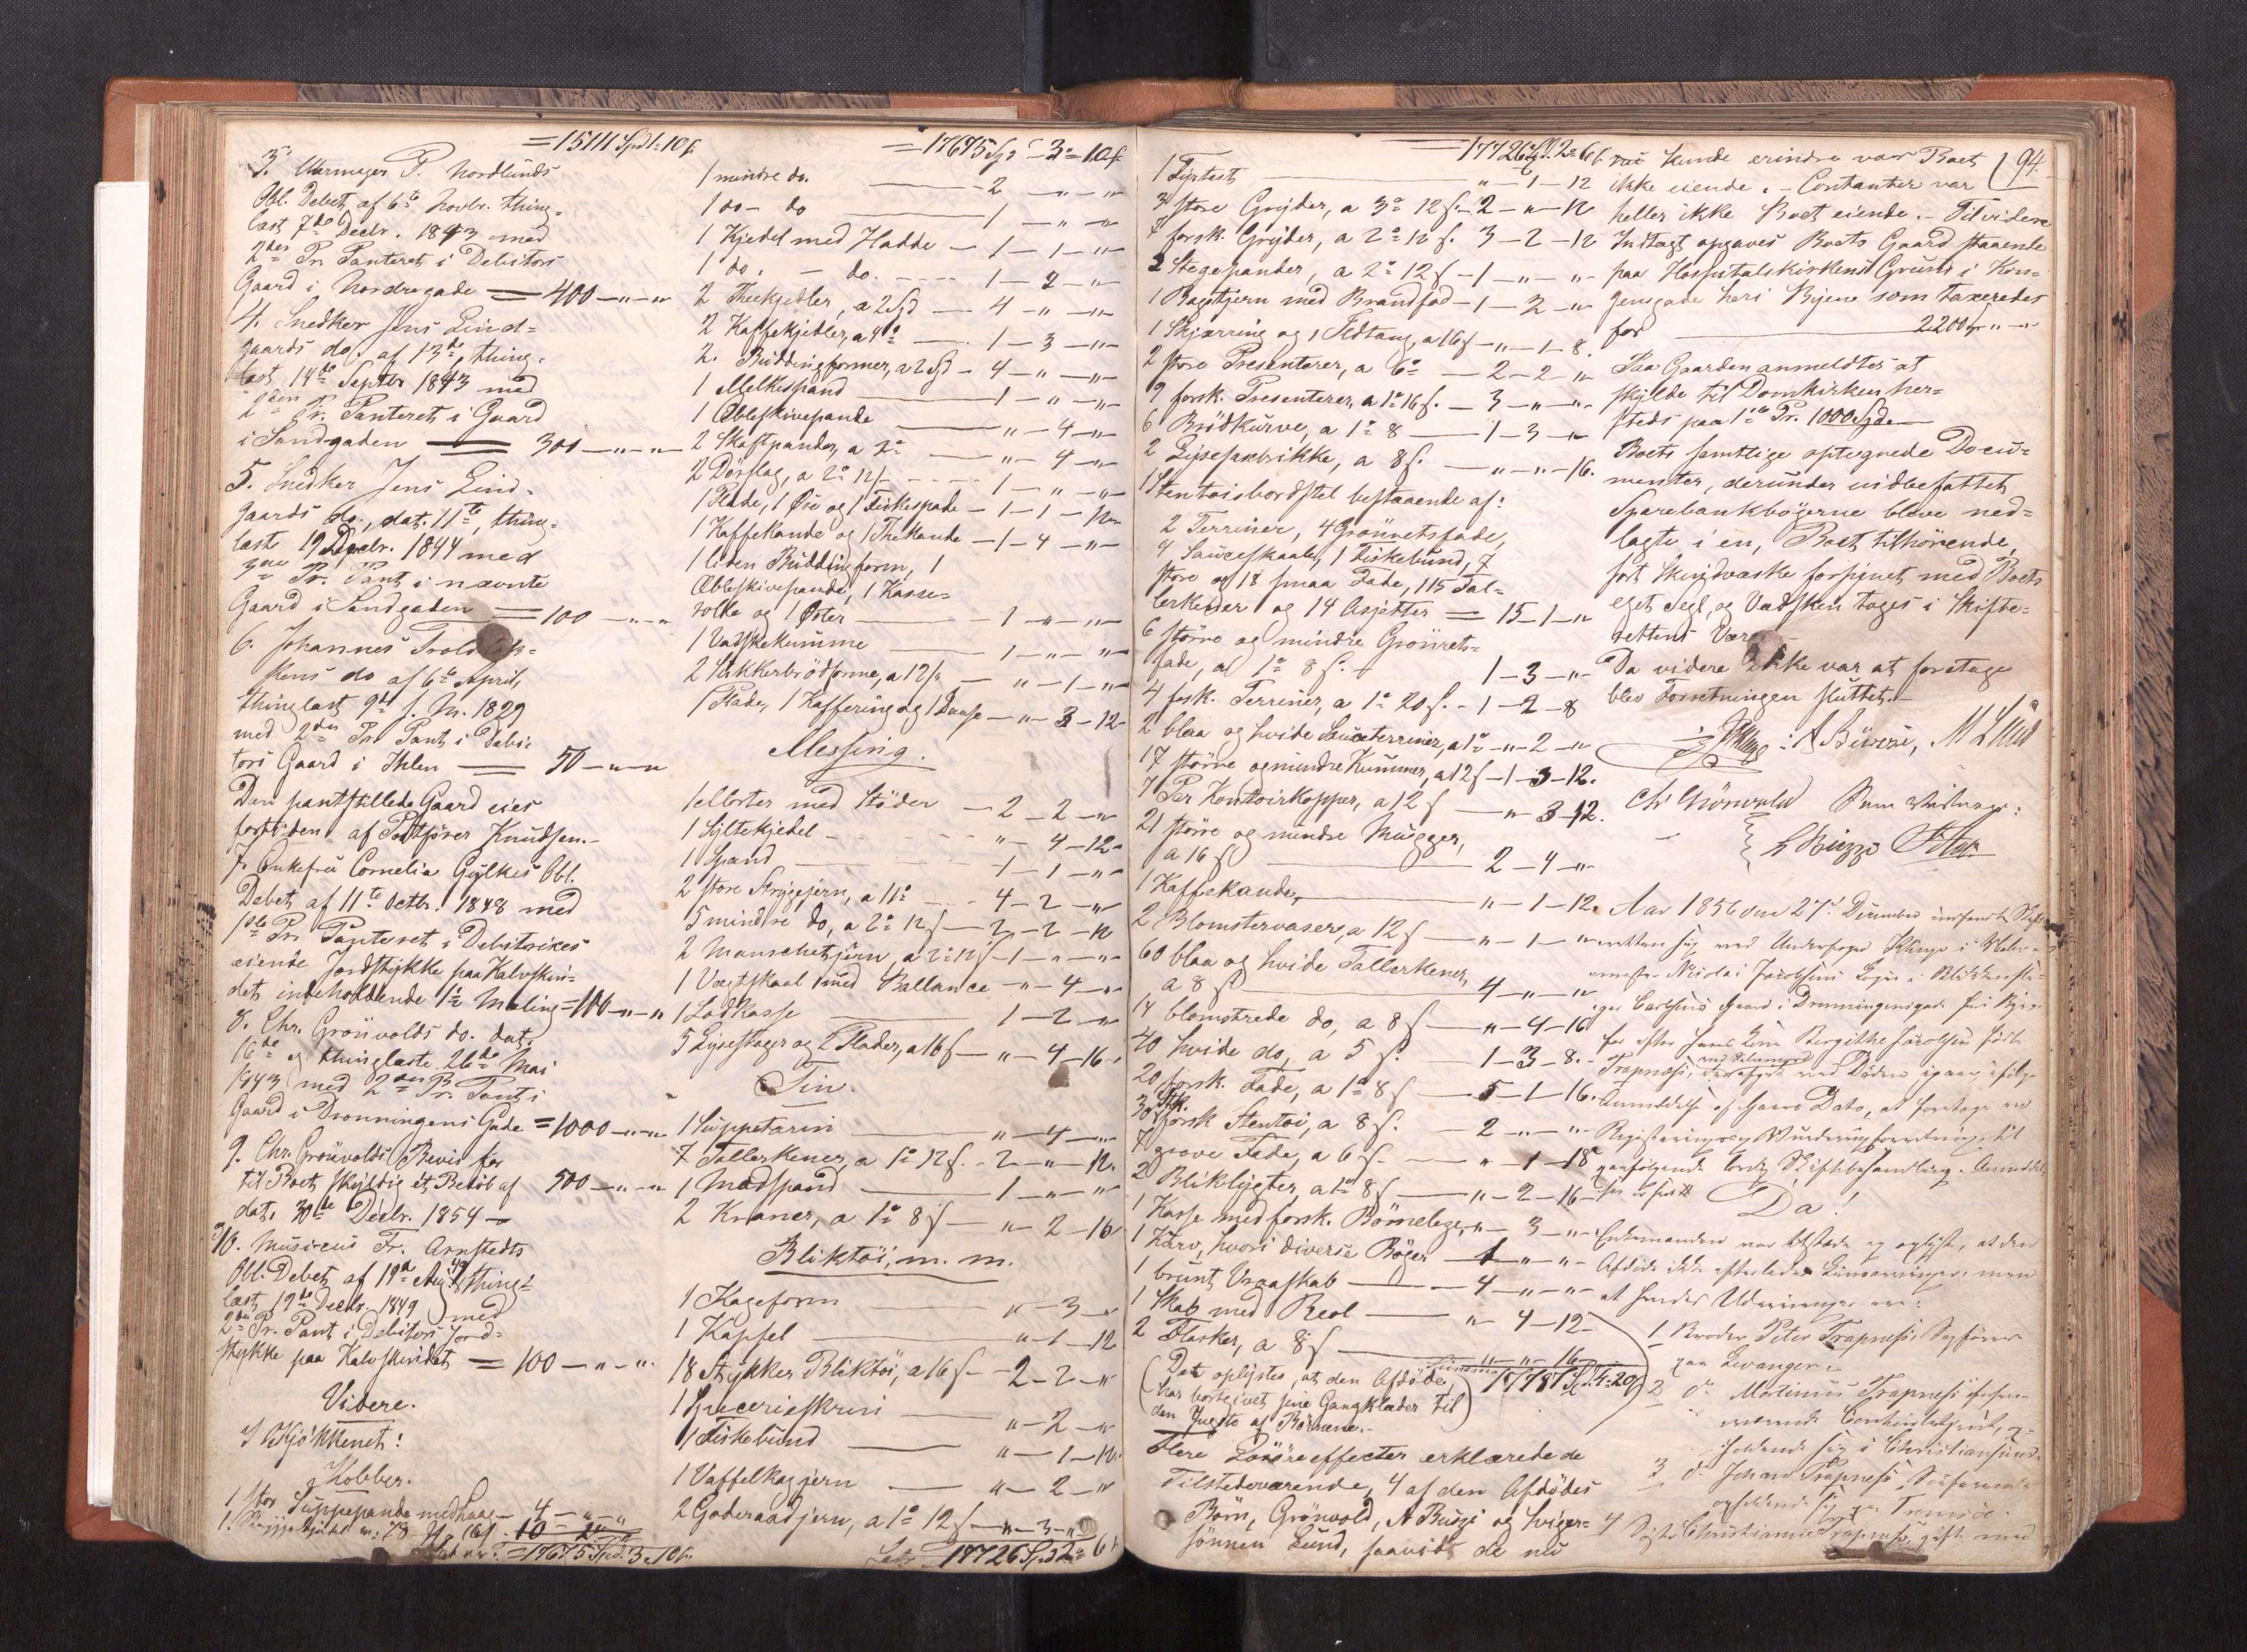 =15111 Spd 1=10 s.
3. Uhrmager P. Nordlunds
Obl. Debet, af 6te Novbr. thing=
læst 7de Decbr. 1843 med
2den Pr. Panteret i Debitors
Gaard i Nordregade = 400 — " — "
4. Snedker Jens Lind=
gaards do. af 13de, thing=
læst 14de Septbr 1843 med
2den Pr. Panteret i Gaard
i Sandgaden = 300 — " — "
5. Snedker Jens Lind=
gaards do., dat. 11te, thing=
læst 19 Decbr. 1844 med
3die Pr. Pant i nævnte
Gaard i Sandgaden = 100 — " — "
6. Johannes
do af 6te April,
thinglæst 9de s. M. 1829
med 2den Pr. Pant i Debi=
tors Gaard i Ihlen — 50 — " — "
Den pantstillede Gaard eies
fortiden af Knudsen.
7. Enkefru Cornelia Gylkes Obl.
Debet af 11te Octbr. 1848 med
1ste Pr. Panteret i Debitrixes
eiende Jordstykke paa Kalvskin=
det indeholdende 1½ Maling = 100 — " — "
8. Chr. Grönvolds do. dat.
16de og thinglæste 26de Mai
1843 med 2den Pr. Pant i
Gaard i Dronningens Gade = 1000 — " — "
9. Chr. Grönvolds Bevis for
til Boet skyldig et Belöb af 500 — " — "
dat. 30te Decbr. 1854
10. Musicus Fr. Arnstedts
Obl. Debet af 19de thing=
læst 19de Decbr. 1849 med
2den Pr. Pant i Debitors Jord=
stykke paa Kalvskindet = 100 — " — "
Videre.
I Kjökkenet:
Kobber.
1 stor Suppepande med Laag — 4 — " — "
=17675 Spd. 3=10 s.
=17675 Spd — 3=10 s
1 mindre do. — 2 — " — "
1 do — do — 1 — " — "
1 Kjedel med Hadde — 1 — 1 — "
1 do. — do. — 1 — 2 — "
2 Theekjedler, a 2 Spd — 4 — " — "
2 Kaffekjedler, a 4 — 1 — 3 — "
2. Buddingformer, a 2 Spd — 4 — " — "
1 Melkespand — 1 — " — "
1 Æbleskivepande — " — 4 — "
2 Skaftpander, a 2 — " — 4 — "
2 Dörslag, a 2= 12 s — 1 — " — "
1 Plade, 1 Öse og 1 Fiskespade — 1 — 1 — 12
1 Kaffekande og 1 Thekande — 1 — 4 — "
1 liden Buddingform, 1
Æbleskivepande, 1 Kasse=
rolle og 1 Öster — 1 — " — "
1 Vaskekumme — 1 — " — "
2 Sukkerbrödforme, a 12 s. — " — 1 — "
1 Plade, 1 Kaffering og 1 — " — 3 — 12
Messing.
1 Morter med Stöder — 2 — 2 — "
1 Syltekjedel — " — 4 — 12
1 Spand — 1 — 1 — "
2 store Strygejern, a 11 — 4 — 2 — "
5 mindre do, a 2= 12 s — 2 — 2 — 12
2 Manschetjern, a 2= 12 s — 1 — " — "
1 Vægtskaal med Ballance — " — 4 — "
1 Lodkasse — 1 — 2 — "
5 Lysestager og 2 Plader, a 16 s — " — 4 — 16
Tin.
1 Suppeterin — " — 4 — "
7 Tallerkener, a 1= 12 s. — 2 — " — 12
1 Madspand — 1 — " — "
2 Kraner, a 1= 8 s — " — 2 — 16
Bliktöi, m. m.
1 Kageform — " — 3 — "
1 Kapsel — " — 1 — 12
18 Stykker Bliktöi, a 16 s — 2 — 2 — "
1 Specerieskrin — " — 2 — "
1 Fiskebund — " — 1 — 12
1 Vaffelkagjern — " — 2 — "
2 Goderaadjern, a 1= 12 s — " — 3 — "
Lat. 17726 Spd 2= 6 s
17726 Spd. 2= 6 s
1 — " — 1 — 12
3 store Gryder, a 3= 12 s. — 2 — " — 12
7 forsk. Gryder, a 2= 12 s. 3 — 2 — 12
2 Stegepander, a 2= 12 s — 1 — " — "
1 Bagstjern med Brandfad — 1 — 2 — "
1 Skjærring og 1 Ildtang, a 16 s — " — 1 — 8
2 store Presenterer, a 6= — 2 — 2 — "
9 forsk. Presenterer, a 1= 16 s. — 3 — " — "
6 Brödkurve, a 1= 8 — 1 — 3 — "
2 Lysesaxbrikke, a 8 s. — " — " — 16.
1 Stentöisbordstel bestaaende af:
2 Terriner, 4 Grönnetsfade,
4 Sauceskaale, 1 Fiskebund, 7
store og 18 smaa Fade, 115 Tal=
lerkener og 14 Asjetter = 15 — 1 — "
6 större og mindre Grönnets=
fade, a 1= 8 s. — 1 — 3 — "
4 fosk. Terriner, a 1= 20 s. — 1 — 2 — 8
2 blaa og hvide Sauceterriner, a 1= — " — 2 — "
17 större og mindre Kummer, a 12 s — 1 — 3 — 12.
7 Par Kontoirkopper, a 12 s — " — 3 — 12.
21 större og mindre Mugger,
a 16 s — 2 — 4 — "
1 Kaffekande, — " — 1 — 12.
2 Blomstervaser, a 12 s — " — 1 — "
60 blaa og hvide Tallerkener,
a 8 s — 4 — " — "
14 blomstrede do, a 8 s — " — 4 — 16
40 hvide do, a 5 s. — 1 — 3 — 8.
20 forsk. Fade, a 1= 8 s — 5 — 1 — 16.
30 Stk. forsk Stentöi, a 8 s. — 2 — " — "
7 grove Fade, a 6 s. — " — 1 — 18
2 Bliklygter, a 1= 8 s — " — 2 — 16
1 Kasse med forsk. Börnelege, " — 3 — "
1 Kurv, hvori diverse Böger — 1 — " — "
1 brunt Vraaskab — 4 — " — "
1 Skab med Reol — " — 4 — 12
2 Flasker, a 8 s — " — " — 16
Summa 17781 Spd. 4=20
(Det oplystes, at den Afdöde,
har bortgivet sine Gangklæder til
den Yngste af Börnene.)
Flere Lösöreeffecter erklærede de
Tilstedeværende, 4 af den Afdödes
Börn, Grönvold, A Buszi og Sviger=
sönnen Lund, saavidt de nu
nu kunde erindre var Boet
94.
ikke eiende. — Contanter var
heller ikke Boet eiende. — Til videre
Indtægt opgaves Boets Gaard staaende
paa Hospitalskirkens Grund i Kon=
gensgade heri Byen som taxeredes
for — 2200 — " — "
Paa Gaarden anmeldtes at
skylde til Domkirken her=
steds paa 1ste Pr. 1000 Spd
Boets samtlige optegnede Docu=
menter, derunder indbefattet
Sparebankbögerne bleve ned=
lagte i en, Boet tilhörende,
sort Skindvæske forsegnet med Boets
eget Segl, og Vædsken toges i Skifte=
rettens Værge
Da videre ikke var at foretage
blev Forretningen sluttet.
M Lund
Chr Grönvold Som Vidner:
L Rizzo
Aar 1856 den 27de December indfandt Skifte=
retten sig ved Underfoged Klinge i
Nicolai Jacobsens Logis i
Gaard i Dronningensgade her i Byen
for efter hans Kone Birgitte Jacobsen födt
Trapness, ved Döden
Anmeldelse af Gaars Dato, at foretage en
Registerings og Vurderingsforretning til
paafölgende lovlig Skiftebehandling.
Da!
Enkemanden var tilstede og oplyste, at den
Afdöde ikke efterlader Livsarvinger, men
at hendes Udarvinger ere:
1 Broder Peter Trapness, Sagförer
paa Levanger.
2 do Martinus Trapness
holdende sig i Christiansund.
3 do Johan Trapness,
opholdende sig paa Tromsöe.
4 Christianne Trapness, gift med